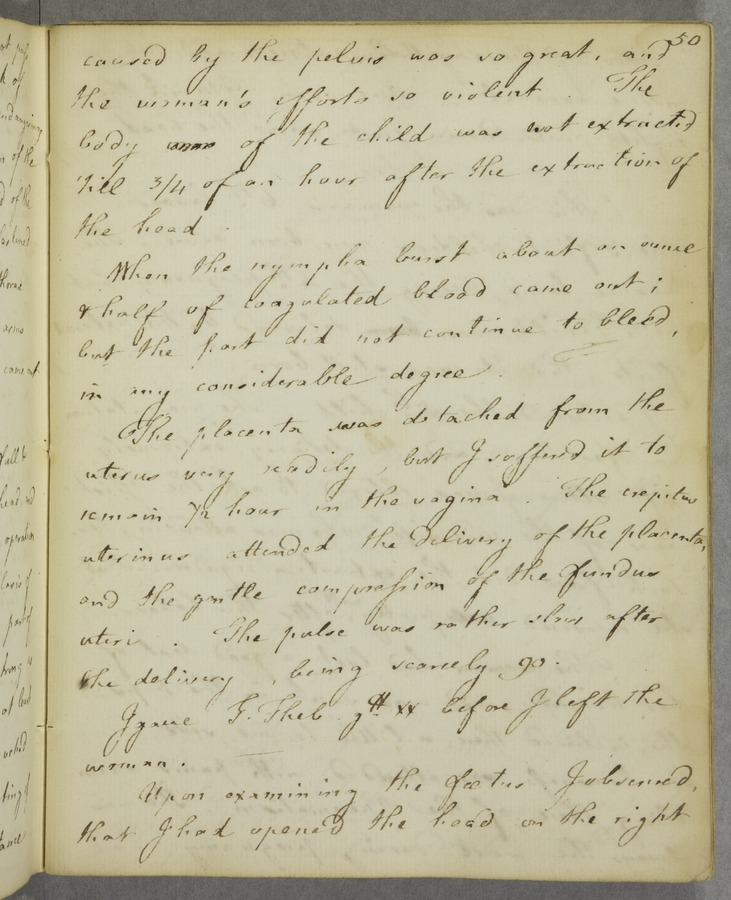 50
caused by the pelvis was so great, and
the woman's efforts so violent. The
body of the child was not extracted
'till 3/4 of an hour after the extraction of
the head.
When the nympha burst about an ounce
& half of coagulated blood came out;
but the part did not continue to bleed,
in any considerable degree.
The placenta was detached from the
uterus very readily, but I suffered it to
remain 1/2 hour in the vagina. The crepitus
uterinus attended the delivery of the placenta,
and the gentle compression of the fundus
uteri. The pulse was rather slow after
the delivery, being scarcely 90.
I gave T. Theb. gtt xx before I left the
woman.
Upon examining the fœtus I observed,
that I had opened the head on the right